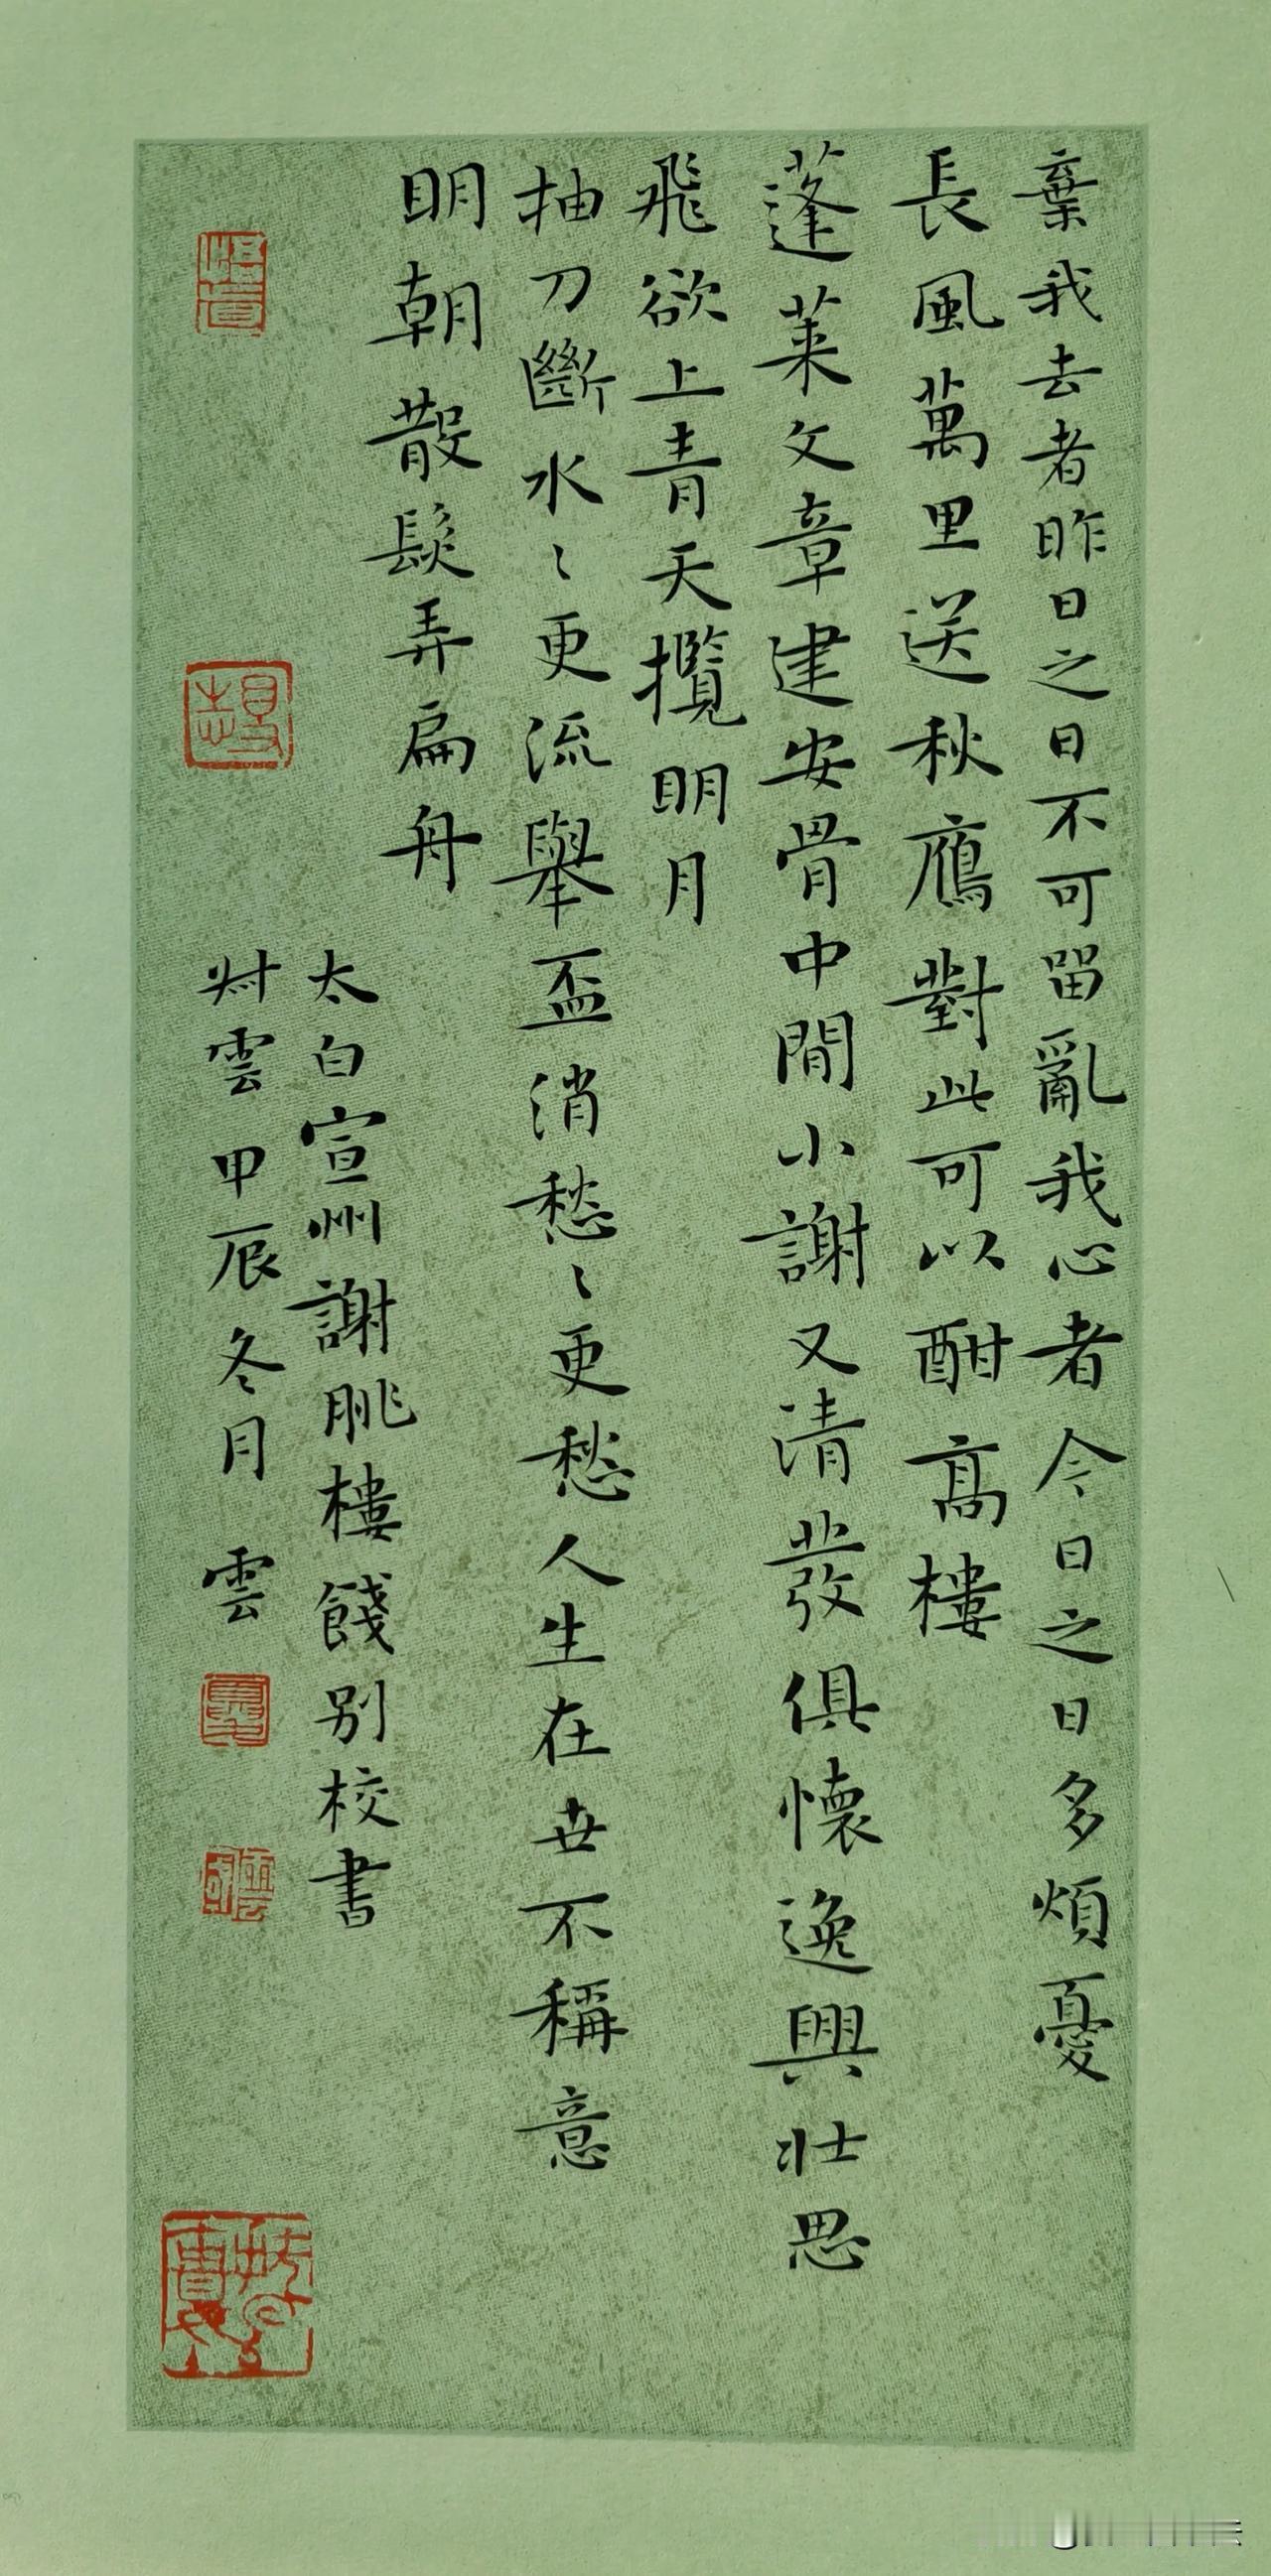 棄我去者昨日之日不可留亂我心者今日之日多煩憂
長風萬里送秋鴈對此可以酣高樓
蓬萊文章建安骨中間小謝又清發俱懷逸興壯思
飛欲上青天攬明月
抽刀斷水〻更流舉盃消愁〻更愁人生在世不稱意
明朝散髮弄扁舟
太白宣州謝朓樓餞別校書
叔雲甲辰冬月 雲